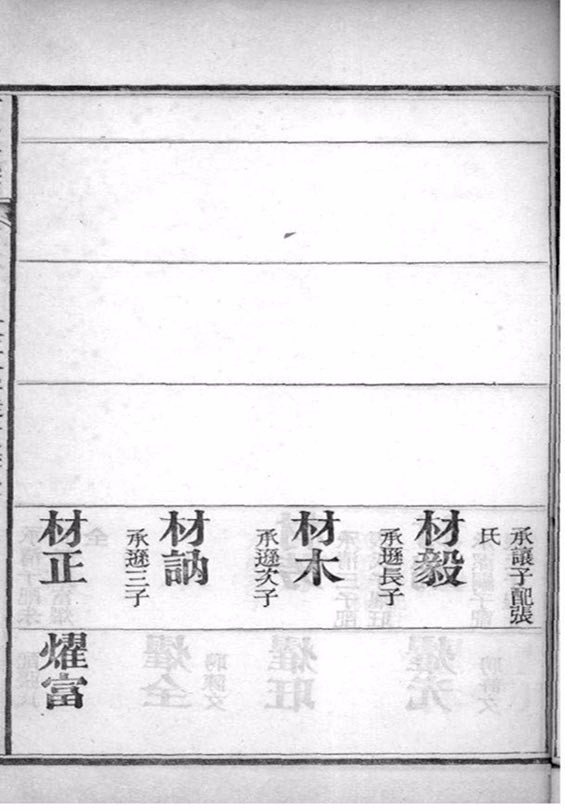 承讓子配張
氏
材毅
承遜長子
材木
承遜次子
材訥
承遜三子
材正
燿富